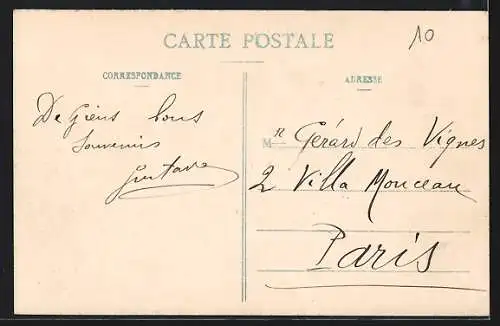 CARTE POSTALE
10
CORRESPONDANCE
De Giens bons
souvenirs
Gustave
ADRESSE
Mr Gérard des Vignes
2 Villa Monceau
Paris